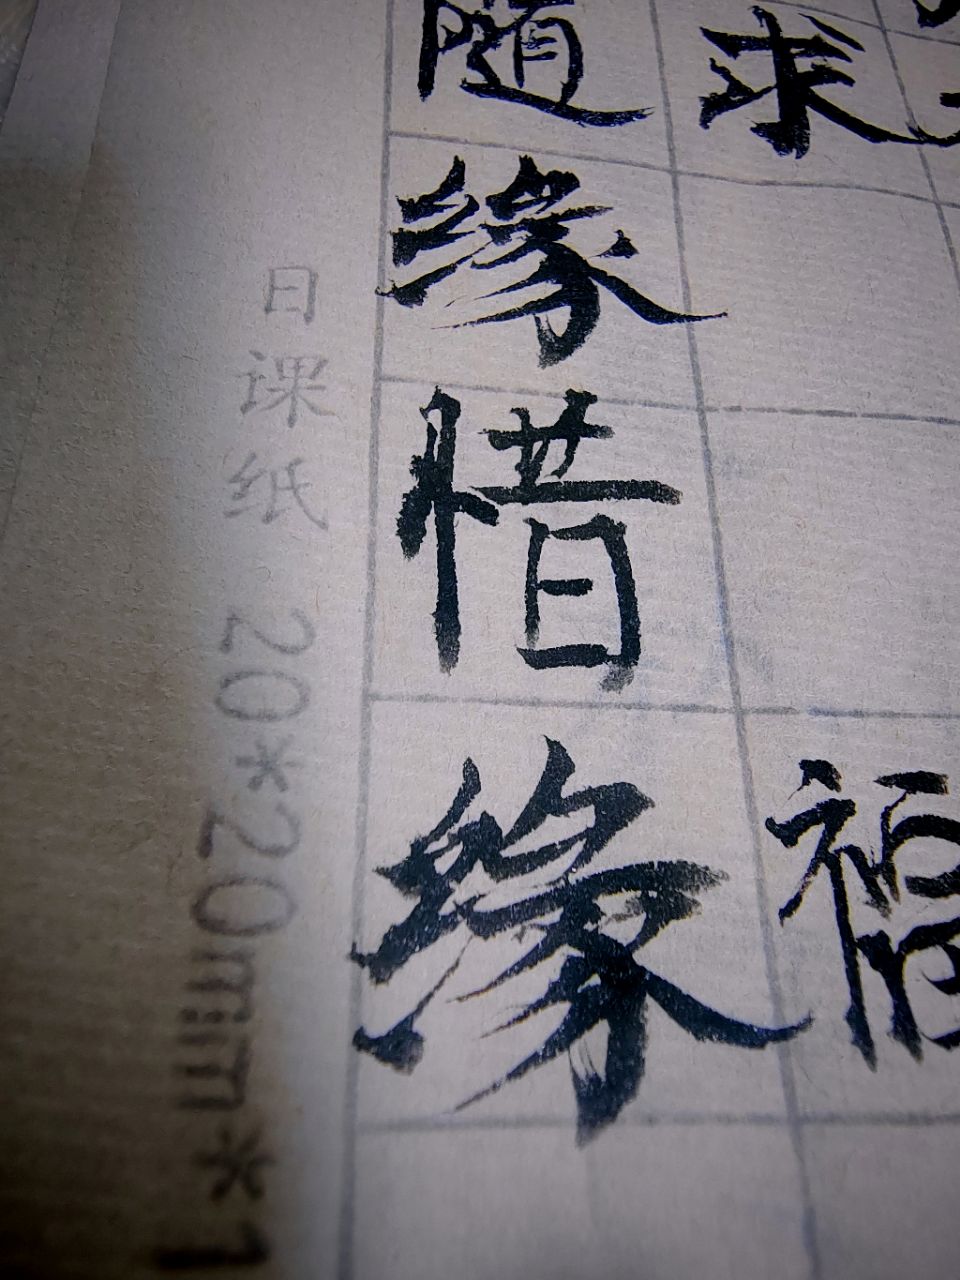 随缘惜缘
求
福
日课纸 20*20mm*1